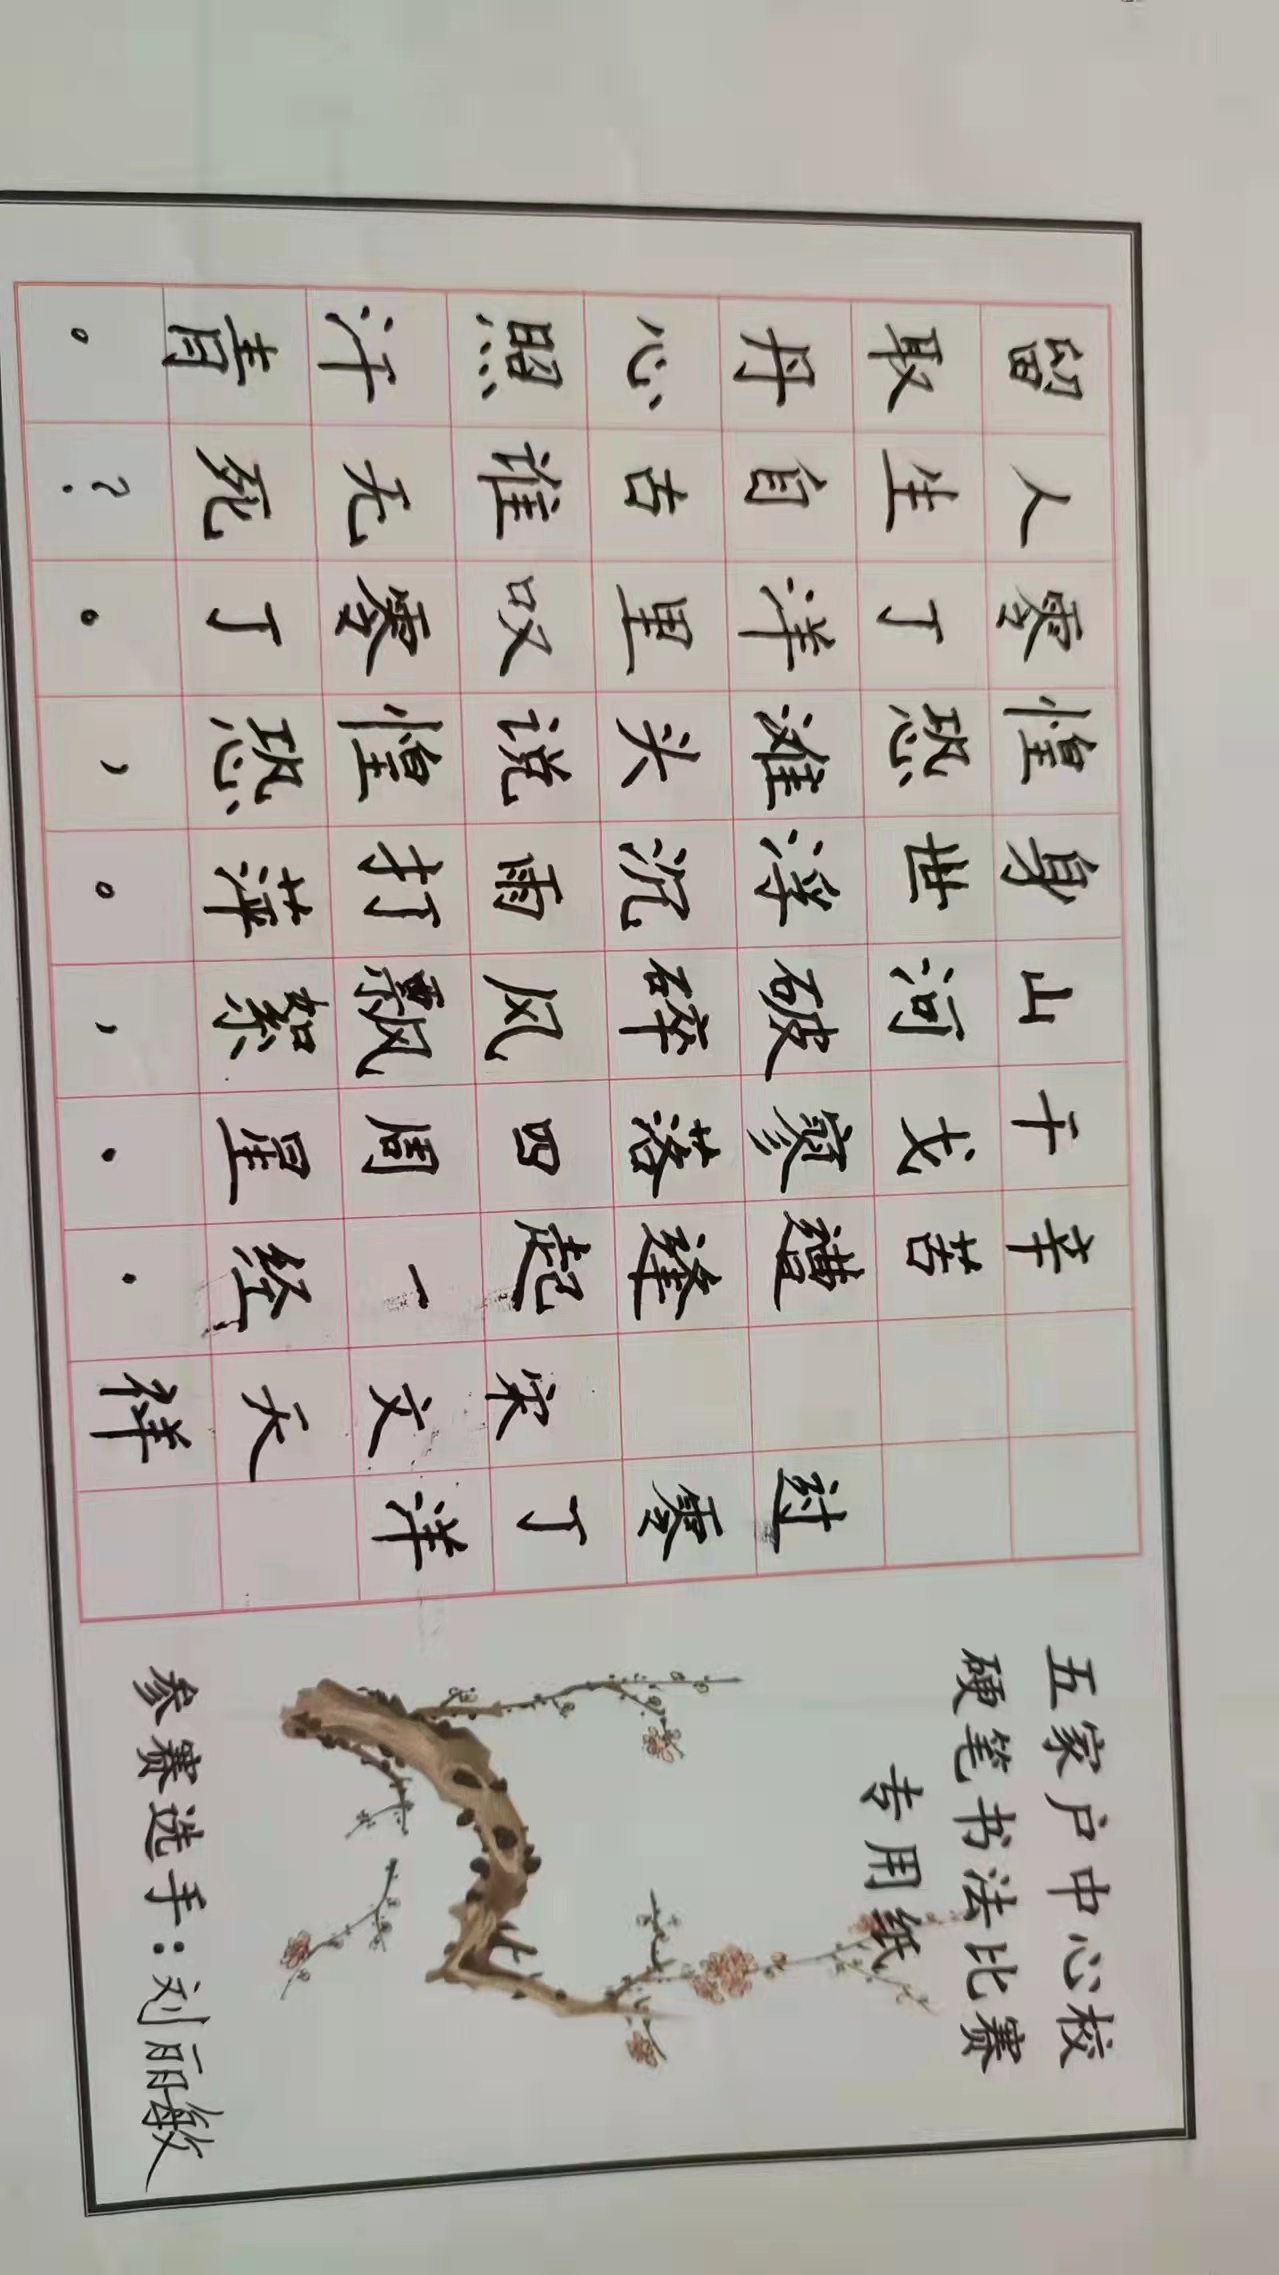 五家户中心校
硬笔书法比赛
专用纸
参赛选手：刘丽敏
过零丁洋
宋文天祥
辛苦遭逢起一经，
干戈寥落四周星。
山河破碎风飘絮，
身世浮沉雨打萍。
惶恐滩头说惶恐，
零丁洋里叹零丁。
人生自古谁无死？
留取丹心照汗青。